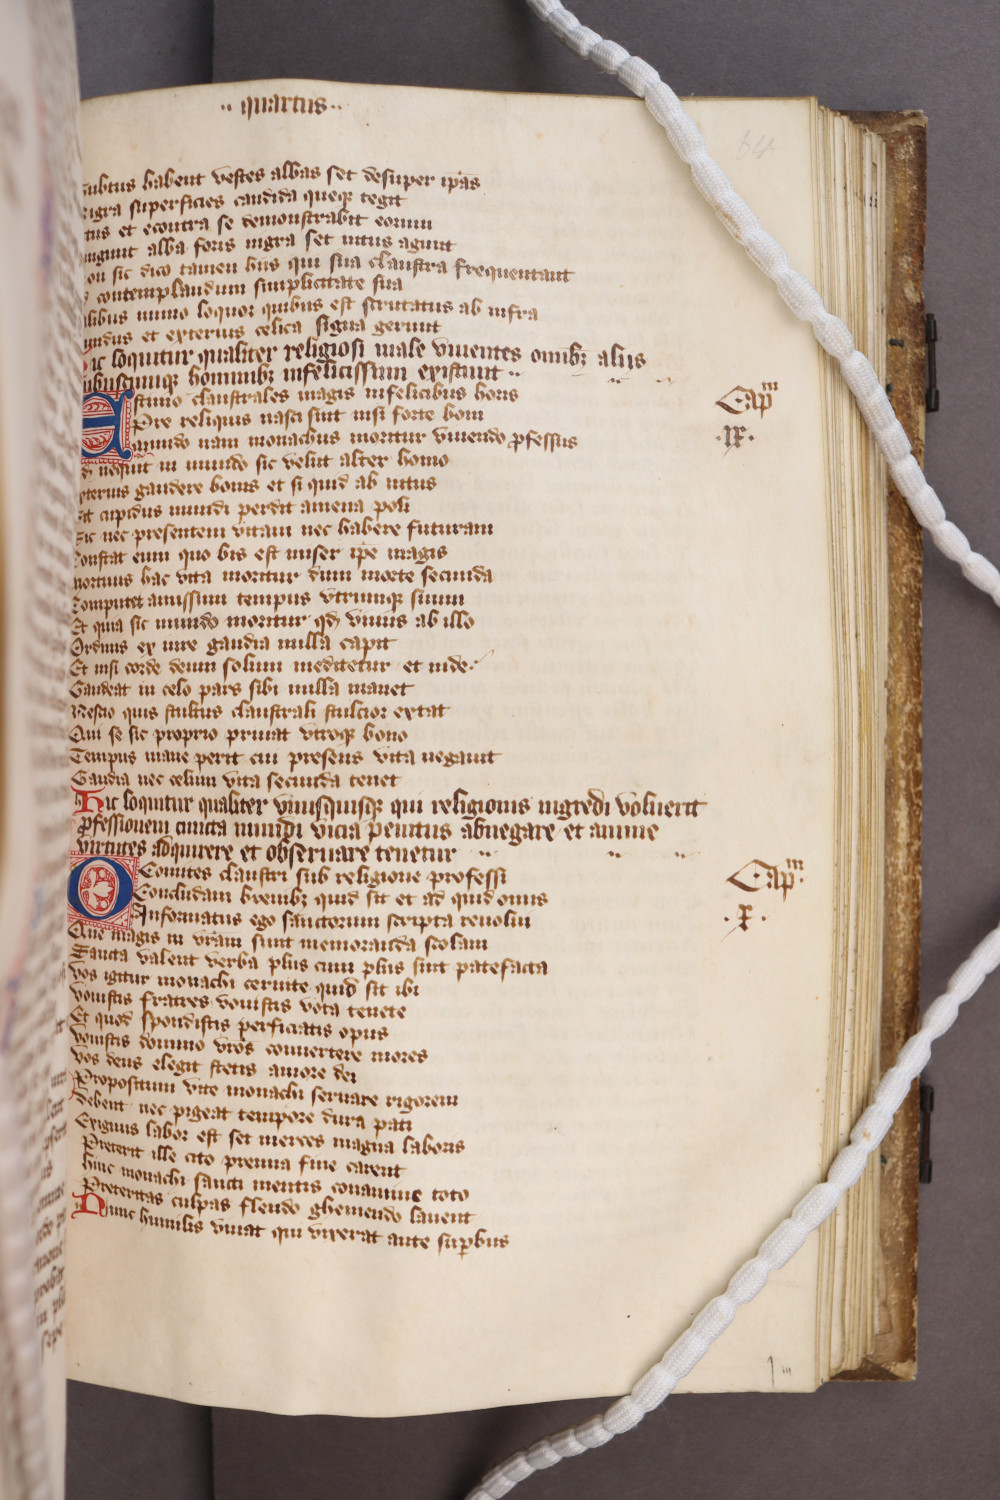 ·· quartus ··
64
Subtus habent vestes albas set desuper ipas
Nigra superficies candida queque tegit
tus et econtra se demonstrabit eorum
ingunt alba foris nigra set intus agunt
on sic dico tamen hijs qui sua claustra frequentant
contemplandum simplicitate sua
alibus immo loquor quibus est scrutatus ab infra
undus et exterius celica signa gerunt
ic loquitur qualiter religiosi male viuentes omnibz alijs
quibuscumque hominibz infelicissimi existunt ··
Estimo claustrales magis infelicibus horis
Pre reliquis nasci sint nisi forte boni
mundo nam monachus moritur viuendo pfessus
nequit in mundo sic velut alter homo
exterius gaudere bonis et si quid ab intus
Sit cupidus mundi perdit amena poli
Sic nec presentem vitam nec habere futuram
Constat eum quo bis est miser ipe magis
mortuus hac vita moritur dum morte secunda
Computet amissum tempus vtrumque suum
Et quia sic mundo moritur qd viuus ab illo
Ordinis ex iure gaudia nulla capit
Et nisi corde deum solum meditetur et inde
Gaudeat in celo pars sibi nulla manet
Nescio quis stultus claustrali stulcior extat
Qui se sic proprio priuat vtroque bono
Tempus inane perit cui presens vita negauit
Gaudia nec celum vita secunda tenet
Cap m
·ix·
Hic loquitur qualiter vnusquisque qui religionis ingredi voluerit
pfessionem cuncta mundi vicia penitus abnegare et anime
virtutes adquirere et obseruare tenetur ··
O Comites claustri sub religione professi
Concludam breuibz quid sit et ad quid onus
Informatus ego sanctorum scripta reuolui
Que magis in vram sunt memoranda scolam
Sancta valent verba plus cum plus sint patefacta
Vos igitur monachi cernite quid sit ibi
Vouistis fratres vouistis vota tenete
Et quod spondistis perficiatis opus
Vouistis domino vros conuertere mores
Vos deus elegit stetis amore dei
Propositum vite monachi seruare rigorem
Debent nec pigeat tempore dura pati
Exiguus labor est set merces magna laboris
Preterit ille cito premia fine carent
hinc monachi sancti mentis conamine toto
Preteritas culpas flendo ghemendo lauent
Nunc humilis viuat qui vixerat ante supbus
Cap m
·x·